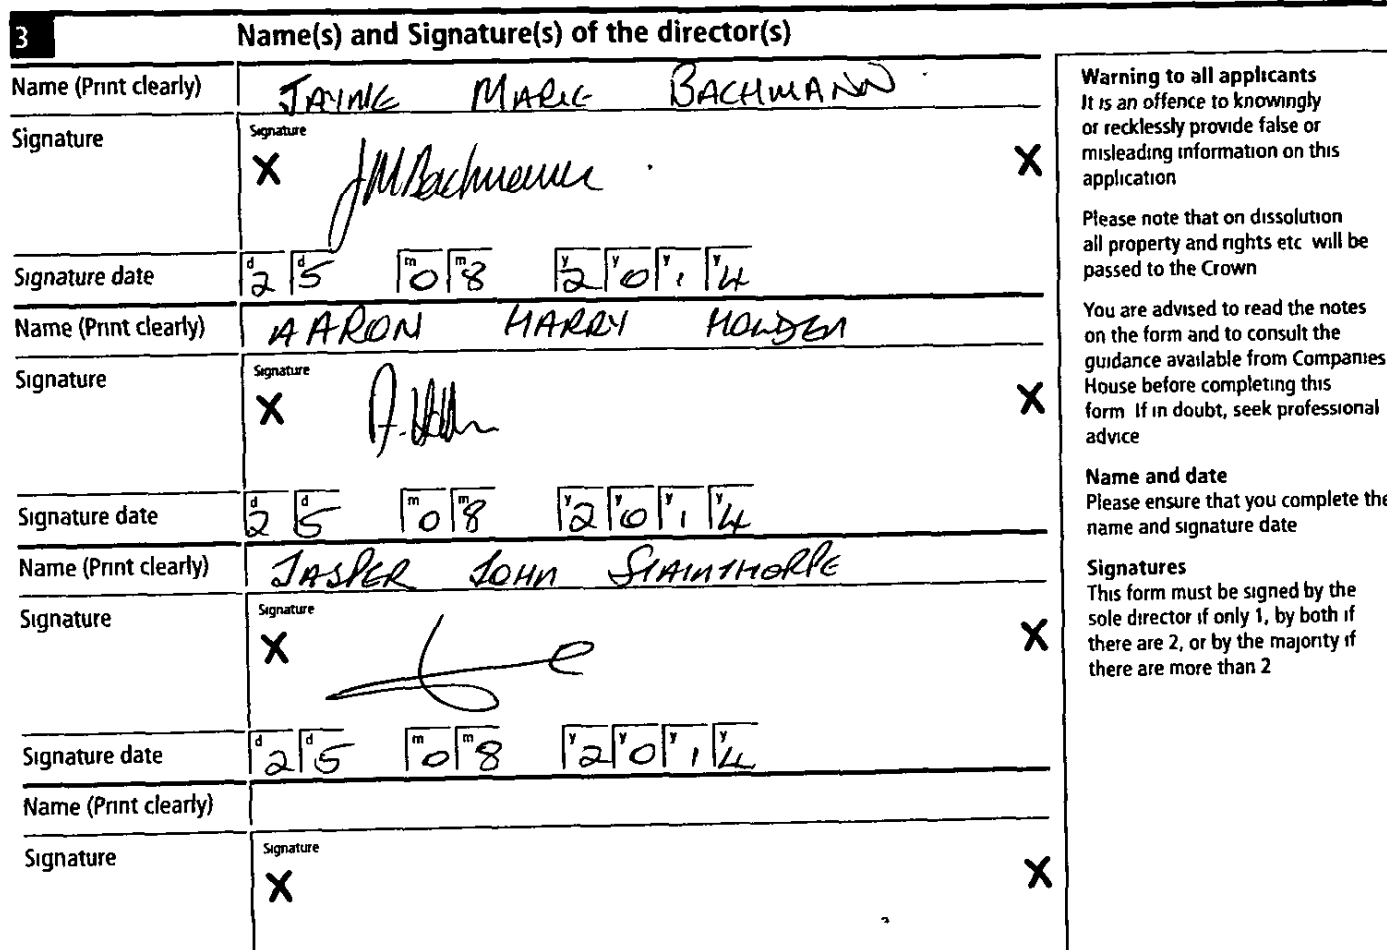 3 Name(s) and Signature(s) of the director(s)
Name (Print clearly) JAYNE MARIE BACHMANN
Signature
Signature
X JMBachmann X
Signature date d2 d5 m0 m8 y2 y0 y1 y4
Name (Print clearly) AARON HARRY HOLDEN
Signature
Signature
X A. X
Signature date d2 d5 m0 m8 y2 y0 y1 y4
Name (Print clearly) JASPER JOHN STAINTHORPE
Signature
Signature
X X
Signature date d2 d5 m0 m8 y2 y0 y1 y4
Name (Print clearly)
Signature
Signature
X X
Warning to all applicants
It is an offence to knowingly
or recklessly provide false or
misleading information on this
application
Please note that on dissolution
all property and rights etc will be
passed to the Crown
You are advised to read the notes
on the form and to consult the
guidance available from Companies
House before completing this
form If in doubt, seek professional
advice
Name and date
Please ensure that you complete the
name and signature date
Signatures
This form must be signed by the
sole director if only 1, by both if
there are 2, or by the majority if
there are more than 2